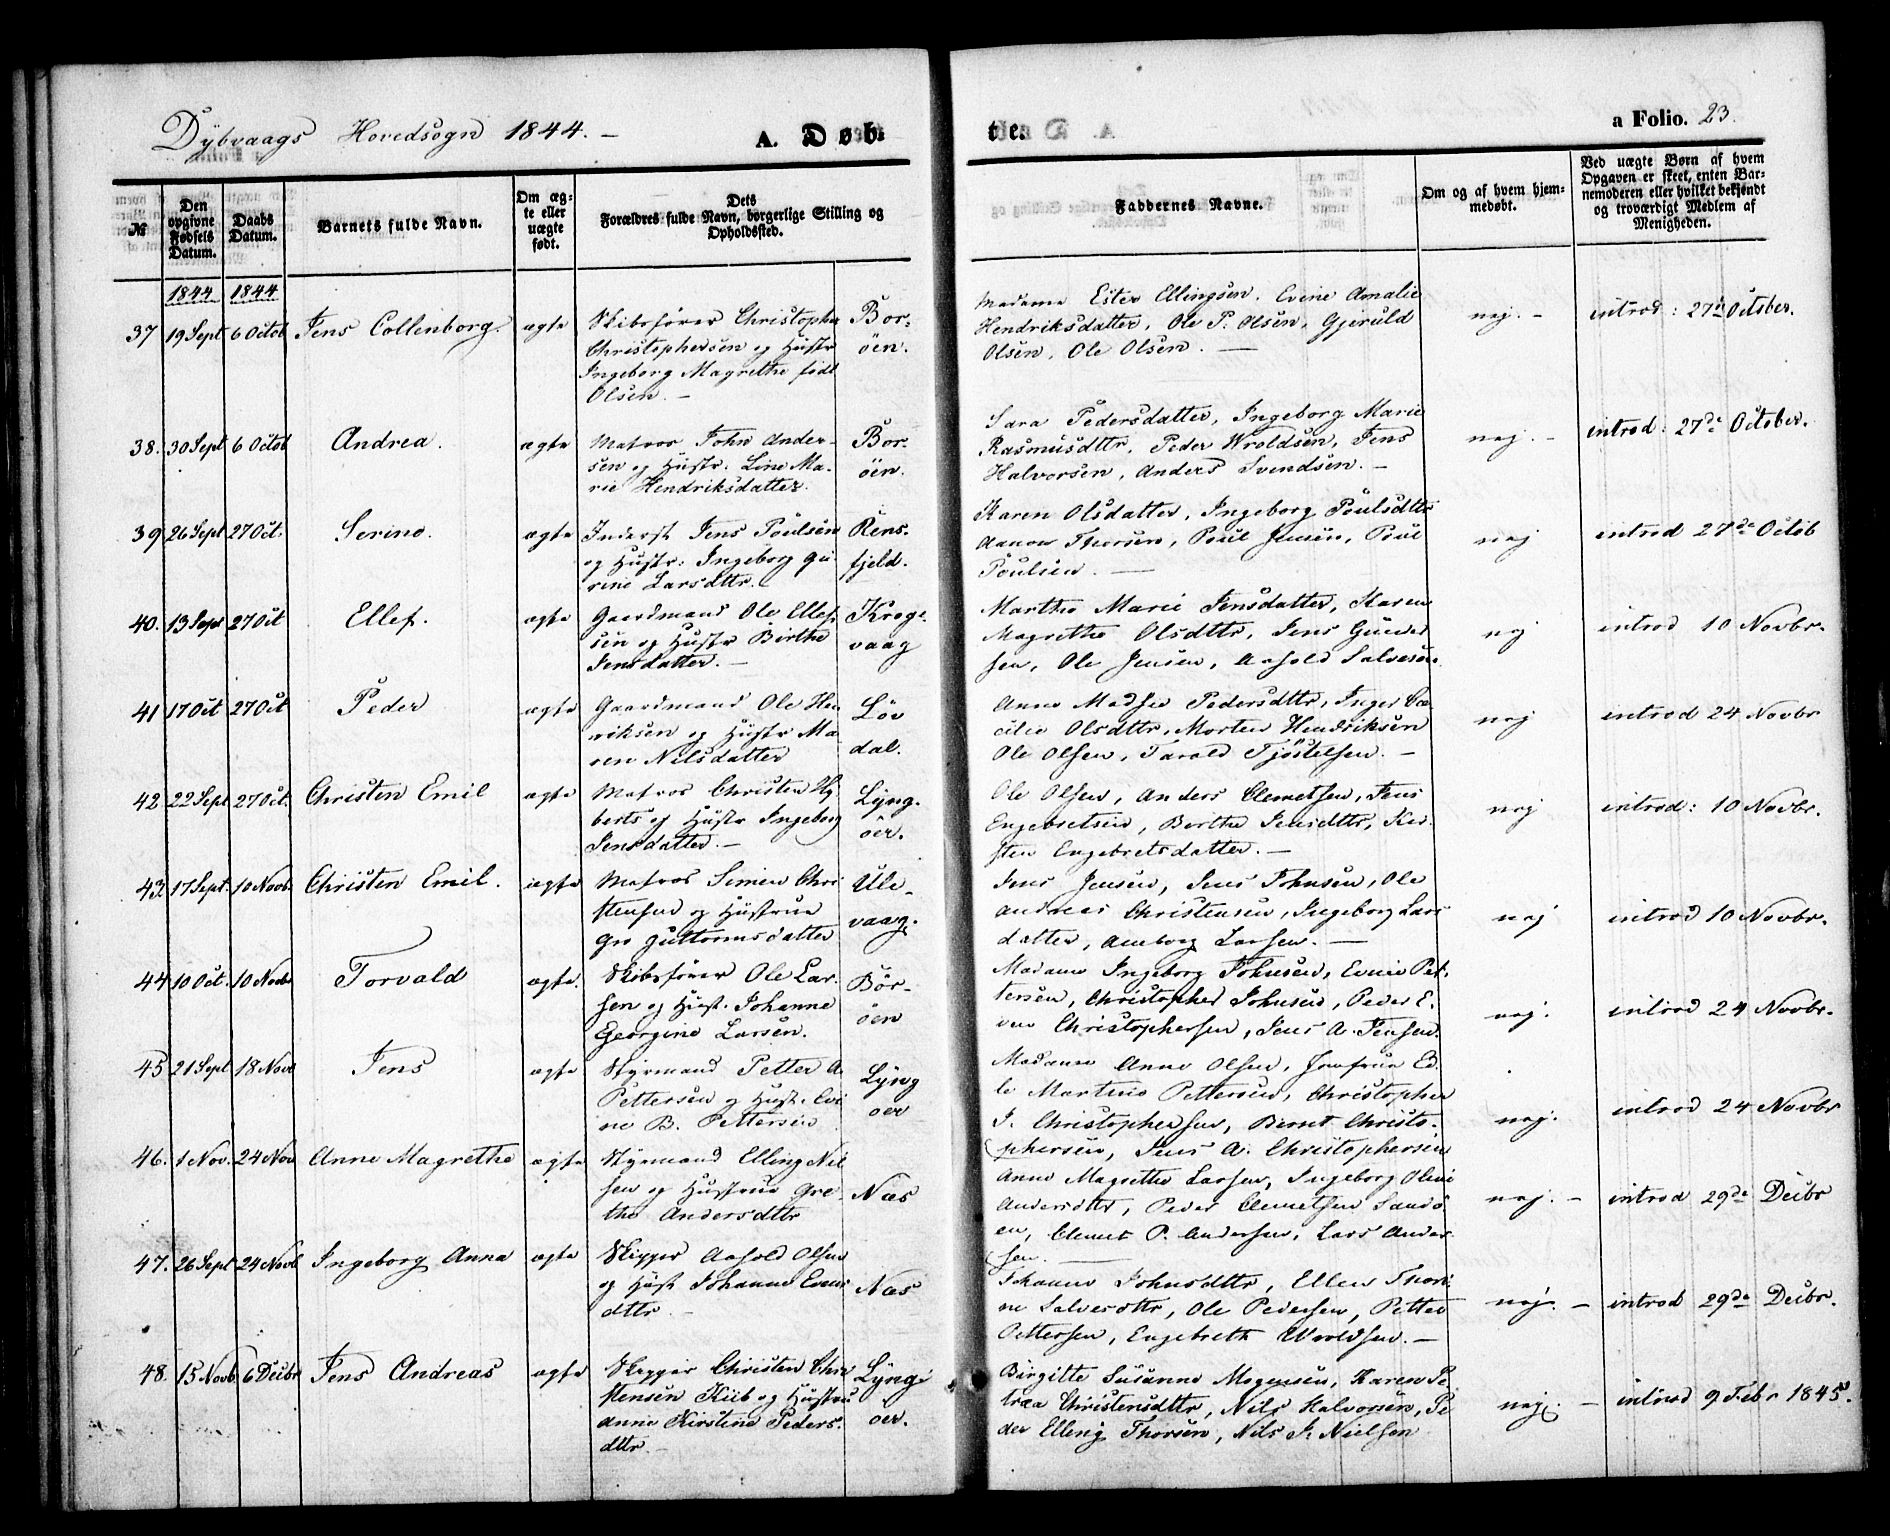 Dybvaags Hovedsogn 1844. –
A. Døb
te.
a Folio. 23.
№
Den opgivne Fødsels Datum.
Daabs Datum.
Barnets fulde Navn.
Om ægte eller uægte født.
Dets Forældres fulde Navn, borgerlige Stilling og Opholdssted.
Faddernes Navne.
Om og af hvem hjemmedøbt.
Ved uægte Børn af hvem Opgaven er skeet, enten Barnemoderen eller hvilket bekjendt og troværdigt Medlem af Menigheden.
1844 1844
37 19 Sept 6 Octob Jens Collenborg. ægte
Skibsfører Christopher
Christophersen og Hustr
Ingeborg Magrethe født
Olsen. –
Bor-
öen.
Madame Ester Ellingsen. Evine Amalie
Hendriksdatter, Ole P. Olsen, Gjeruld
Olsen, Ole Olsen. —
nej. – introd: 27de October.
38. 30 Sept 6 Octob Andrea. ægte
Matros John Ander-
sen og Hustr. Line Ma-
rie Hendriksdatter.
Bor-
öen.
Sara Pedersdatter, Ingeborg Marie
Rasmusdttr, Peder Wroldsen, Jens
Halvorsen, Anders Svendsen. –
nej. – introd: 27de October.
39 26 Sept 27 Oct. Serine. ægte
Inderst Jens Poulsen
og Hustr: Ingeborg Gu-
rine Larsdttr.
Rens-
fjeld.
Karen Olsdatter, Ingeborg Poulsdttr
Aanon Thorsen, Poul Jensen, Poul
Poulsen. —
nej introd 27de Octob
40. 13 Sept 27 Oct Ellef. ægte
Gaardmand Ole Ellef-
sen og Hustr Birthe
Jensdatter. –
Kroge-
vaag
Marthe Marie Jensdatter, Karen
Magrethe Olsdttr, Jens Gunder
sen, Ole Jensen, Aasold Salvesen.
nej introd 10 Novbr.
41 17 Oct 27 Oct Peder ægte
Gaardmand Ole Hen
riksen og Hustr Ma-
ren Nilsdatter
Löv
dal.
Anne Madse Pedersdttr, Inger Ce-
cilie Olsdttr, Morten Hendriksen
Ole Olsen, Tarald Tjöstelsen. –
nej introd 24 Novbr
42 22 Sept 27 Oct. Christen Emil ægte
Matros Christen Hy
berts og Hustr Ingeborg
Jensdatter. –
Lyng-
öer.
Ole Olsen, Anders Clemetsen, Jens
Engebretsen, Berthe Jensdttr, Kir-
sten Engebretsdatter. –
nej introd: 10 Novbr.
43 17 Sept. 10 Novb. Christen Emil. ægte
Matros Simen Chri
stensen og Hustrue
Gro Guttormsdatter
Ule-
vaag.
Jens Jensen, Jens Johnsen, Ole
Andreas Christensen, Ingeborg Lars
datter, Larsen. —
nej introd 10 Novbr.
44 10 Oct. 10 Novb Torvald ægte.
Skibsfører Ole Lar-
sen og Hust. Johanne
Georgine Larsen.
Bör-
öen
Madame Ingeborg Johnsen, Evine Pet-
tersen, Christopher Johnsen, Peder E-
ven Christophersen, Jens A. Jensen.
nej. introd 24 Novbr.
45 21 Sept 18 Nov Jens ægte
Styrmand Petter A
Pettersen og Hust. Evi
ne B. Pettersen
Lyng
oer
Madame Anne Olsen, Jomfrue Ed-
le Martine Pettersen, Christopher
J. Christophersen, Bernt Christo-
phersen, Jens A. Christophersen
nej. introd 24 Novbr
46. 1 Nov. 24 Nov Anne Magrethe ægte
Styrmand Elling Nil
sen og Hustrue Gre-
the Andersdttr
Næs
Anne Magrethe Larsen, Ingeborg Oline
Andersdttr, Peder Clemetsen Sandö
en, Clemet P. Andersen, Lars Ander-
sen. —
nej. – introd 29de Decbr
47. 26 Sept 24 Novb Ingeborg Anna ægte
Skipper Aasold Olsen
og Hust Johanne Evens
dttr –
Næs
Johanne Johnsdttr, Ellen Thori-
ne Salvesdttr, Ole Pedersen, Petter
Pettersen, Engebreth Wroldsen. –
nej. – introd 29de Decbr.
48. 15 Novb 6 Decbr Jens Andreas ægte
Skipper Christen Chri
stensen Kiib og Hustru
Anne Kirstine Peders-
dttr. –
Lyng-
oer.
Birgitte Susanne Mogensen, Karen Pe-
træa Christensdttr, Nils Halvorsen, Pe
der Elling Thorsen, Nils J. Nielsen
nej. – introd 9 Febr 1845.